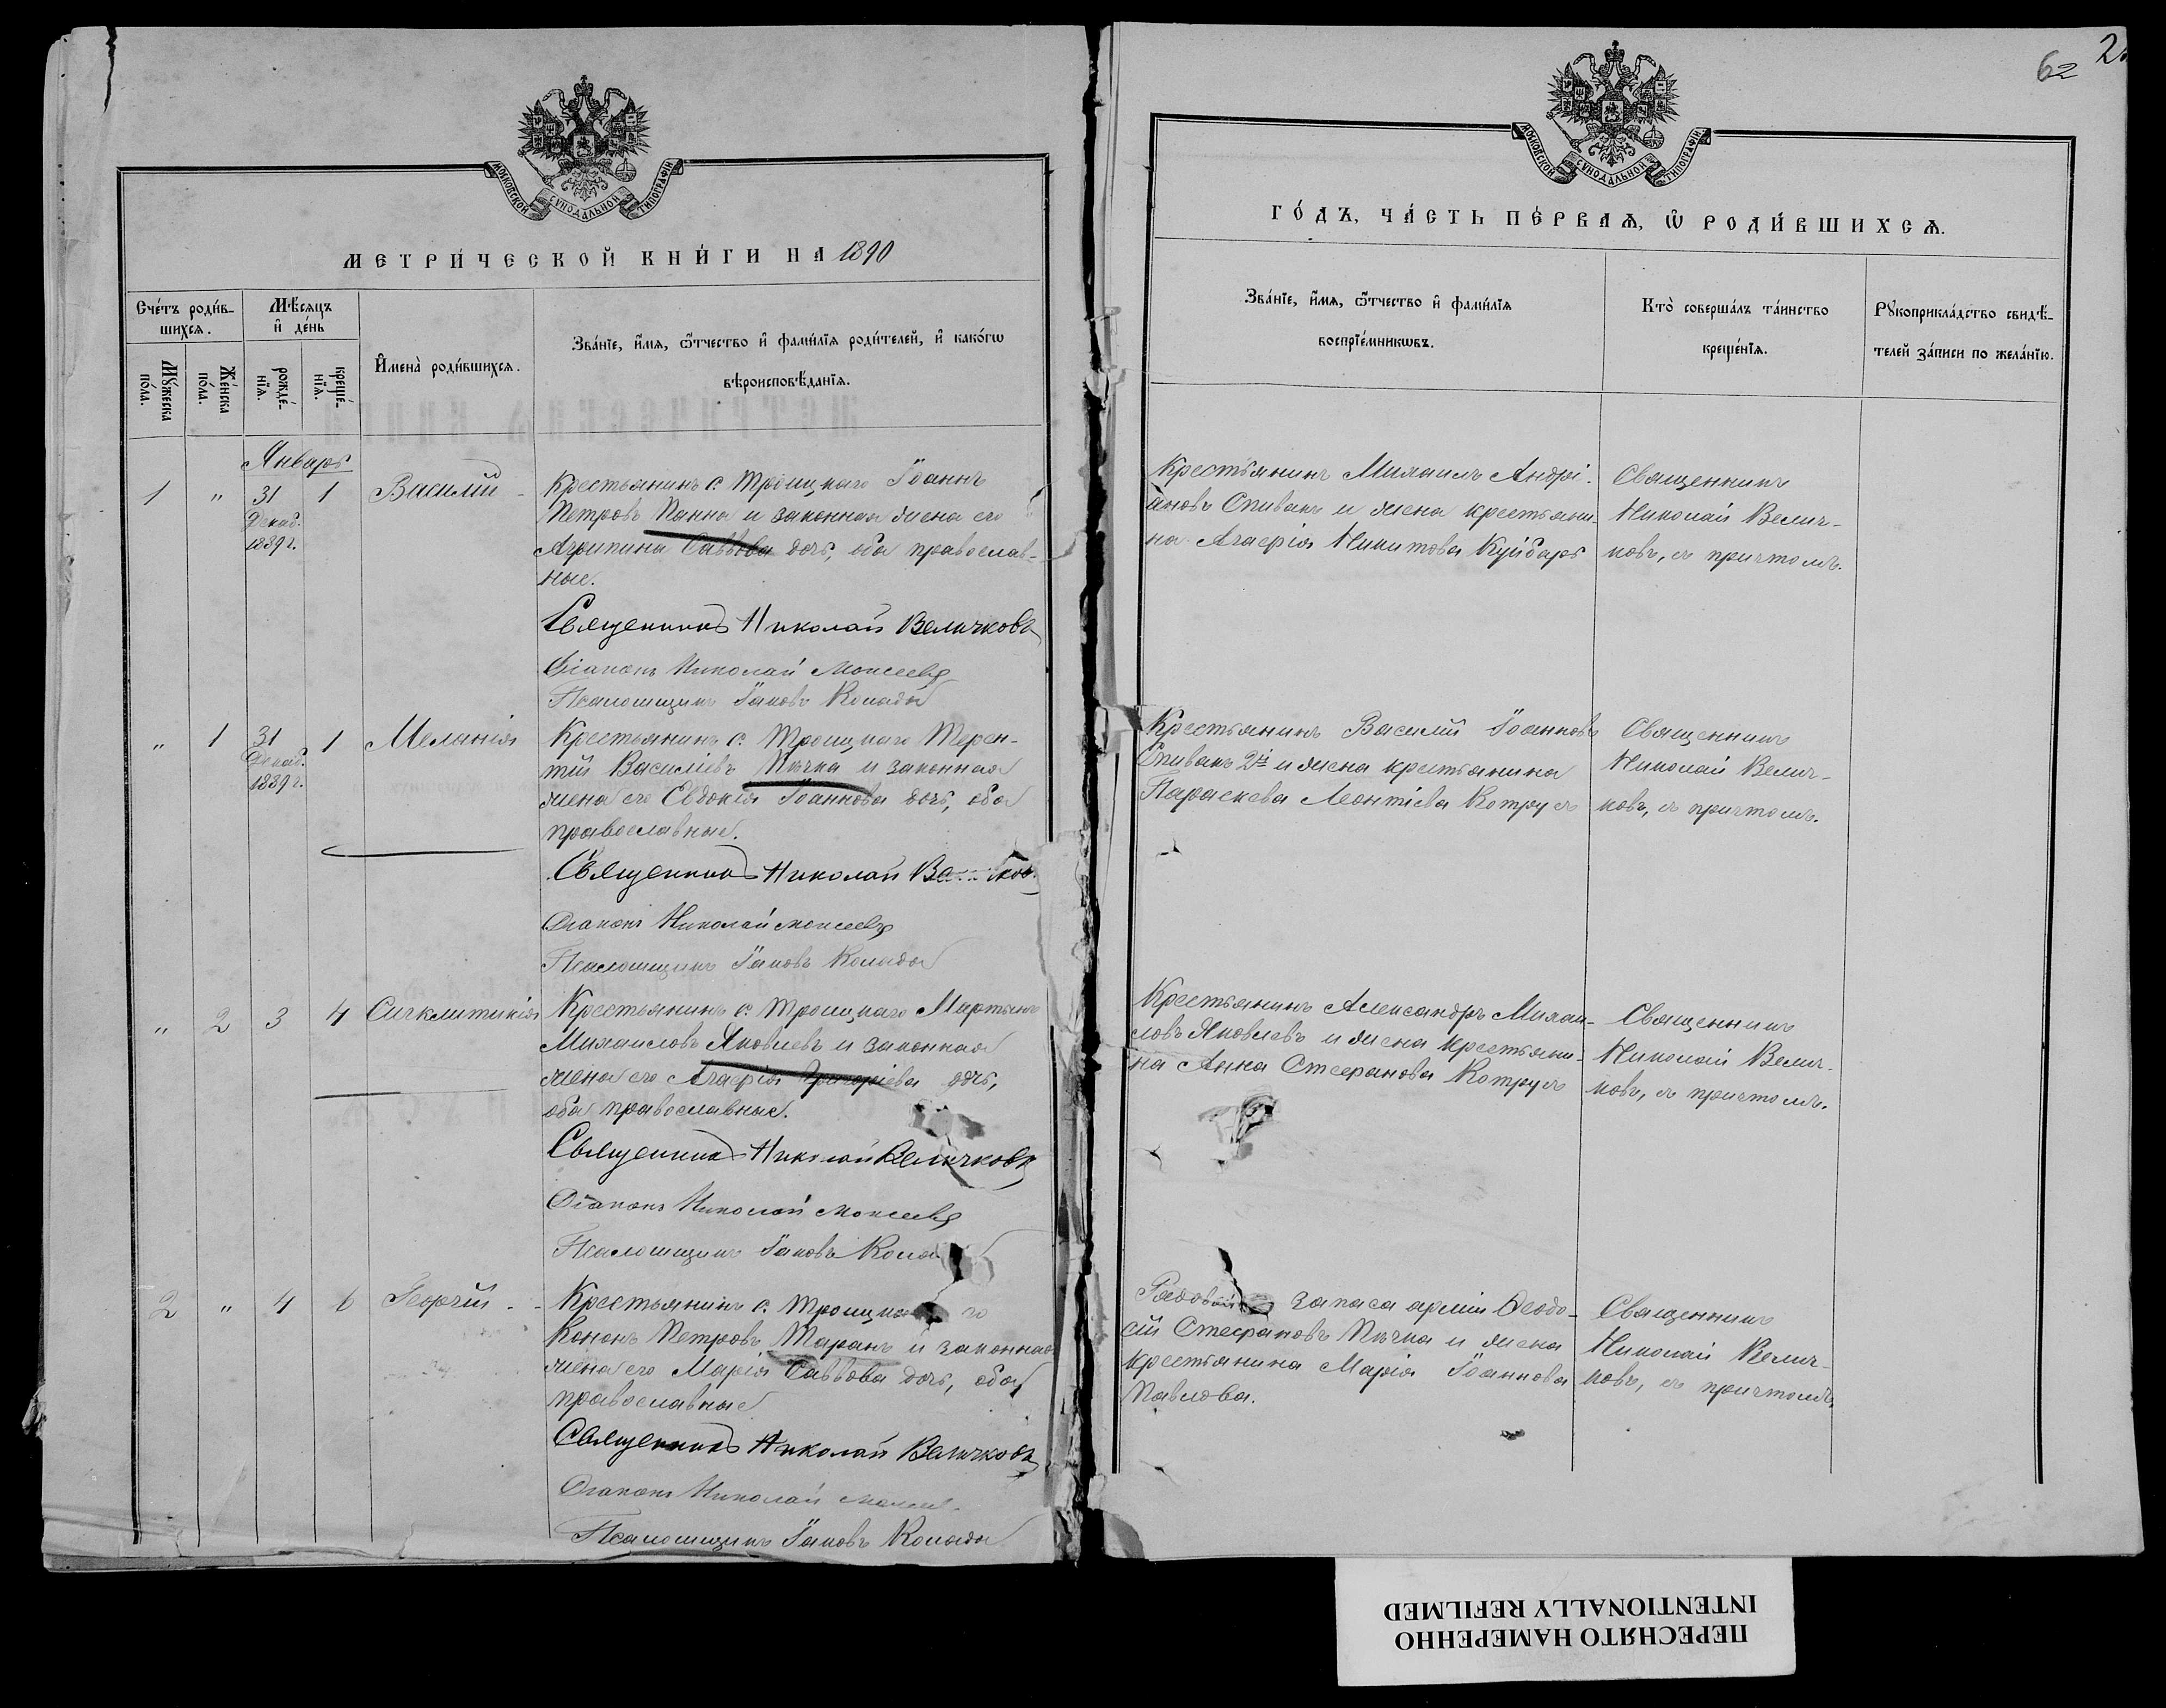 62 2
МОСКОВСКОЙ СѴНОДАЛЬНОЙ ТИПОГРАФІИ
МЕТРИ́ЧЕСКОЙ КНИ́ГИ НА 1890
Сче́тъ роди́в-
шихсѧ.
Мѣ́сѧцъ
и҆ де́нь
Мꙋ́жеска
по́ла.
Же́нска
по́ла.
рожде́-
нїѧ.
креще́-
нїѧ.
И҆мена̀ роди́вшихсѧ.
Зва́нїе, и҆́мѧ, ѻ҆́тчество и҆ фами́лїѧ роди́телей, и҆ како́гѡ
вѣроисповѣ́данїѧ.
Январь
1 " 31 1 Василій
Декаб.
1889 г.
Крестьянинъ с. Троицкаго Іоаннъ
Петровъ Панна и законная жена его
Агрипина Саввова дочь, оба православ-
ные.
Священникъ Николай Величковъ
Діаконъ Николай Моисеевъ
Псаломщикъ Іаковъ Колада
" 1 31 1 Меланія
Декаб.
1889 г.
Крестьянинъ с. Троицкаго Терен-
тій Василіевъ Пѣчка и законная
жена его Евдокія Іоаннова дочь, оба
православные.
Священникъ Николай
Діаконъ Николай Моисеевъ
Псаломщикъ Іаковъ Колада
" 2 3 4 Сигклитикія
Крестьянинъ с. Троицкаго Мартинъ
Михаиловъ Яковлевъ и законная
жена его Агафія Григоріева дочь,
оба православные.
Священникъ Николай Величковъ
Діаконъ Николай Моисеевъ
Псаломщикъ Іаковъ
2 " 4 6 Георгій
Крестьянинъ с. Троицкаго
Кононъ Петровъ Таранъ и законная
жена его Марія Саввова дочь, оба
православные
Священникъ Николай Величковъ
Діаконъ Николай
Псаломщикъ Іаковъ Колада
МОСКОВСКОЙ СѴНОДАЛЬНОЙ ТИПОГРАФІИ
ГО́ДЪ, ЧА́СТЬ ПЕ́РВАѦ, Ѡ҆ РОДИ́ВШИХСѦ.
Зва́нїе, и҆́мѧ, ѻ҆́тчество и҆ фами́лїѧ
воспрїе́мникѡвъ.
Кто̀ соверша́лъ та́инство
креще́нїѧ.
Рꙋкоприкла́дство свидѣ́-
телей за́писи по жела́нїю.
Крестьянинъ Михаилъ Андрі-
ановъ Спивакъ и жена крестьяни-
на Агафія Никитова Куйбарь
Священникъ
Николай Велич-
ковъ, съ причтомъ.
Крестьянинъ Василій Іоанновъ
Спивакъ 2й и жена крестьянина
Параскева Леонтіева Котрусъ
Священникъ
Николай Велич-
ковъ, съ причтомъ.
Крестьянинъ Александръ Михаи-
ловъ Яковлевъ и жена крестьяни-
на Анна Стефанова Котрусъ
Священникъ
Николай Велич-
ковъ, съ причтомъ.
Рядовой запаса арміи Ѳеодо-
сій Стефановъ Пѣчка и жена
крестьянина Марія Іоаннова
Павлова.
Священникъ
Николай Велич-
ковъ, съ причтомъ.
ПЕРЕСНЯТО НАМЕРЕННО
INTENTIONALLY REFILMED